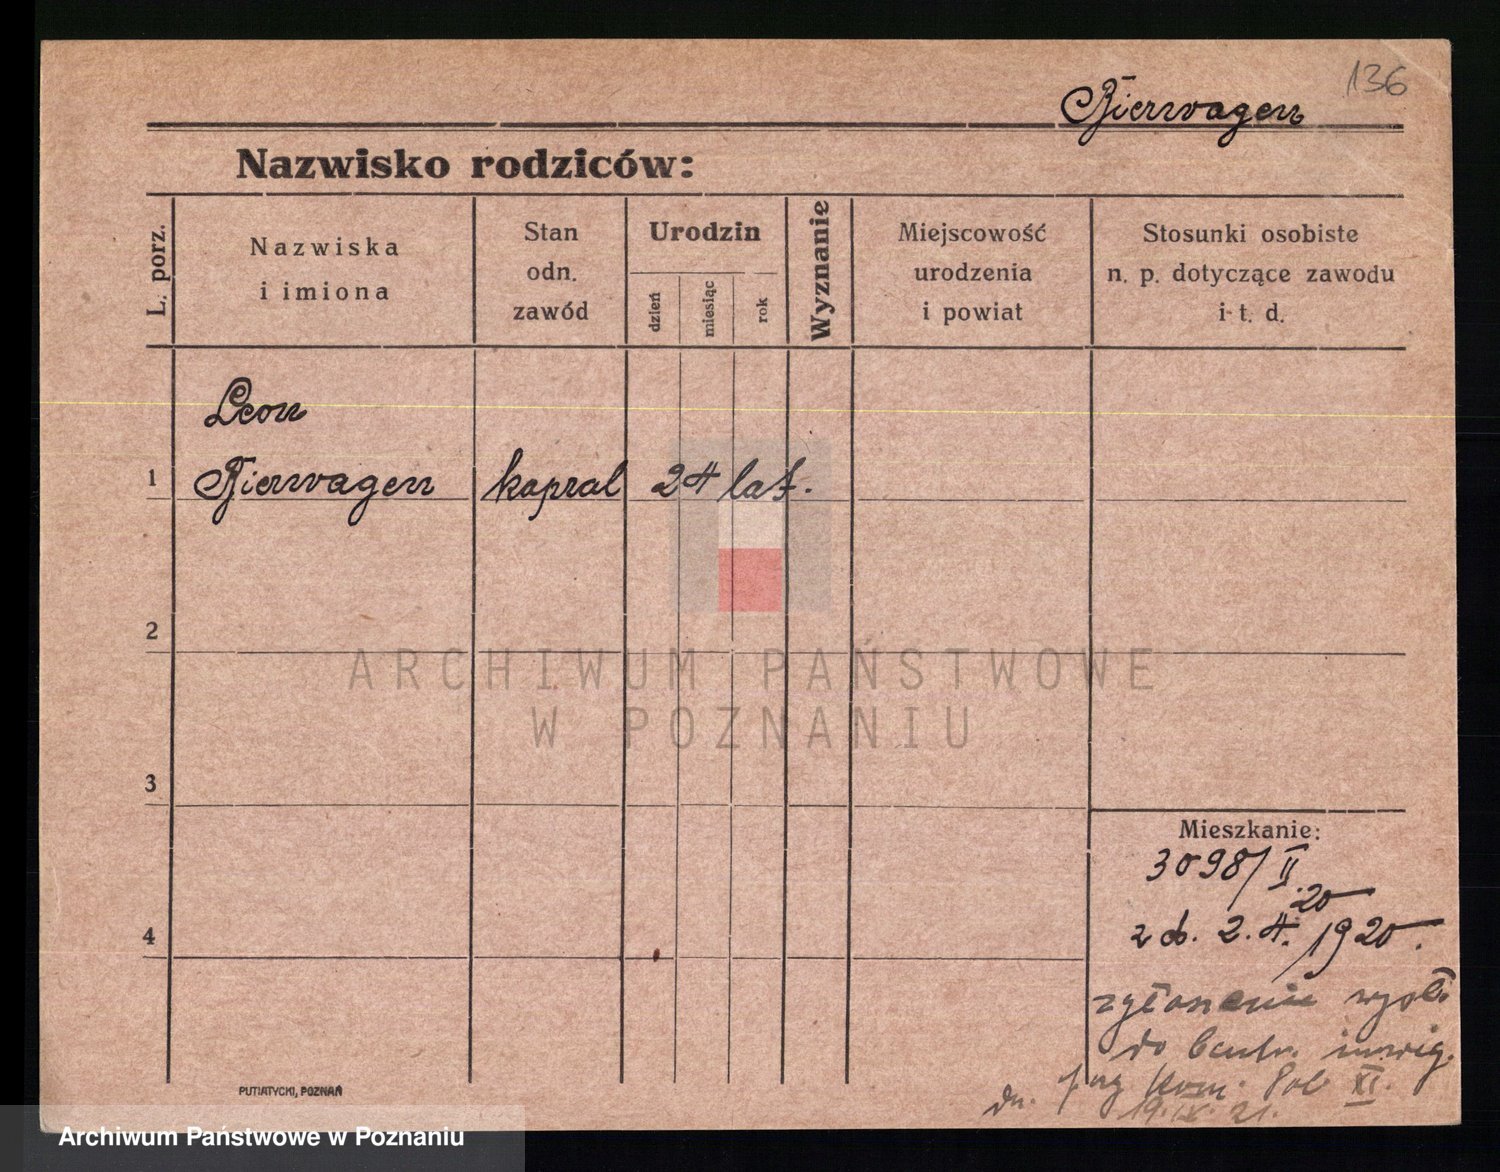 136
Bierwagen
Nazwisko rodziców:
L. porz.
Nazwiska
i imiona
Stan
odn.
zawód
Urodzin
dzień
miesiąc
rok
Wyznanie
Miejscowość
urodzenia
i powiat
Stosunki osobiste
n. p. dotyczące zawodu
i t. d.
Leon
1 Bierwagen kapral 24 lat.
2
3
4
ARCHIWUM PAŃSTWOWE
W POZNANIU
Mieszkanie:
3098/II
20
z d. 2.4. 1920.
zgłoszenie
do
Kom. Pol. XI.
dn. 19.IX.21.
PUTIATYCKI, POZNAŃ
Archiwum Państwowe w Poznaniu